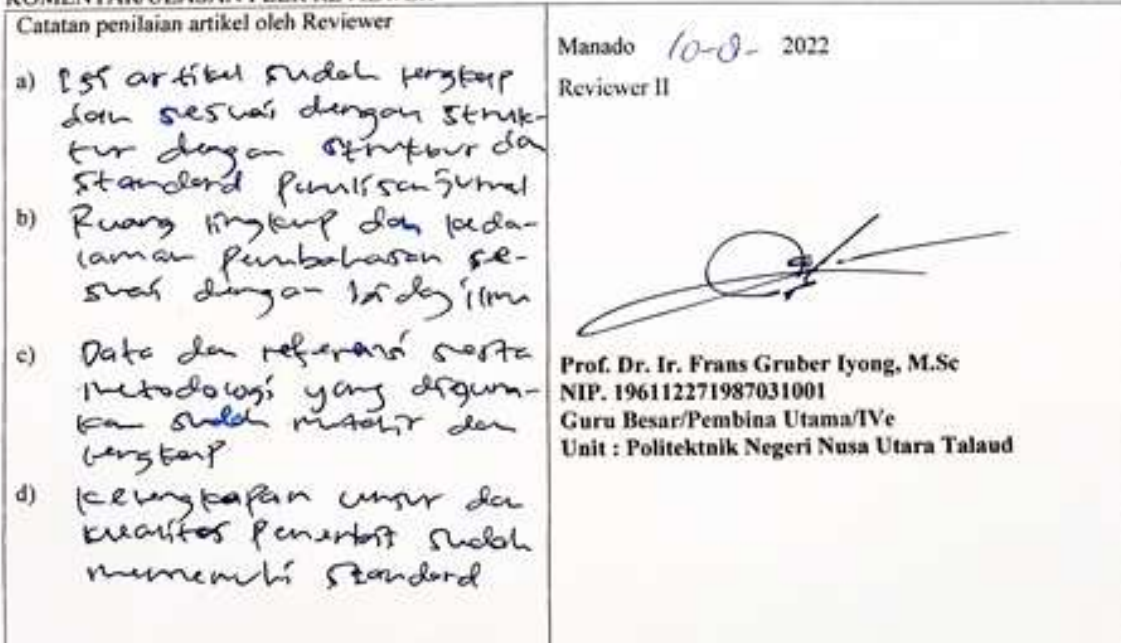 Catatan penilaian artikel oleh Reviewer
a) Isi artikel sudah lengkap
dan sesuai dengan struk-
tur dengan struktur dan
standard penulisan jurnal
b) Ruang lingkup dan keda-
laman pembahasan se-
suai dengan bidang ilmu
c) Data dan referensi serta
metodologi yang diguna-
kan sudah mutahir dan
lengkap
d) kelengkapan unsur dan
kualitas Penerbit sudah
memenuhi standard
Manado 10-8- 2022
Reviewer II
Prof. Dr. Ir. Frans Gruber Iyong, M.Sc
NIP. 196112271987031001
Guru Besar/Pembina Utama/IVe
Unit : Politektnik Negeri Nusa Utara Talaud